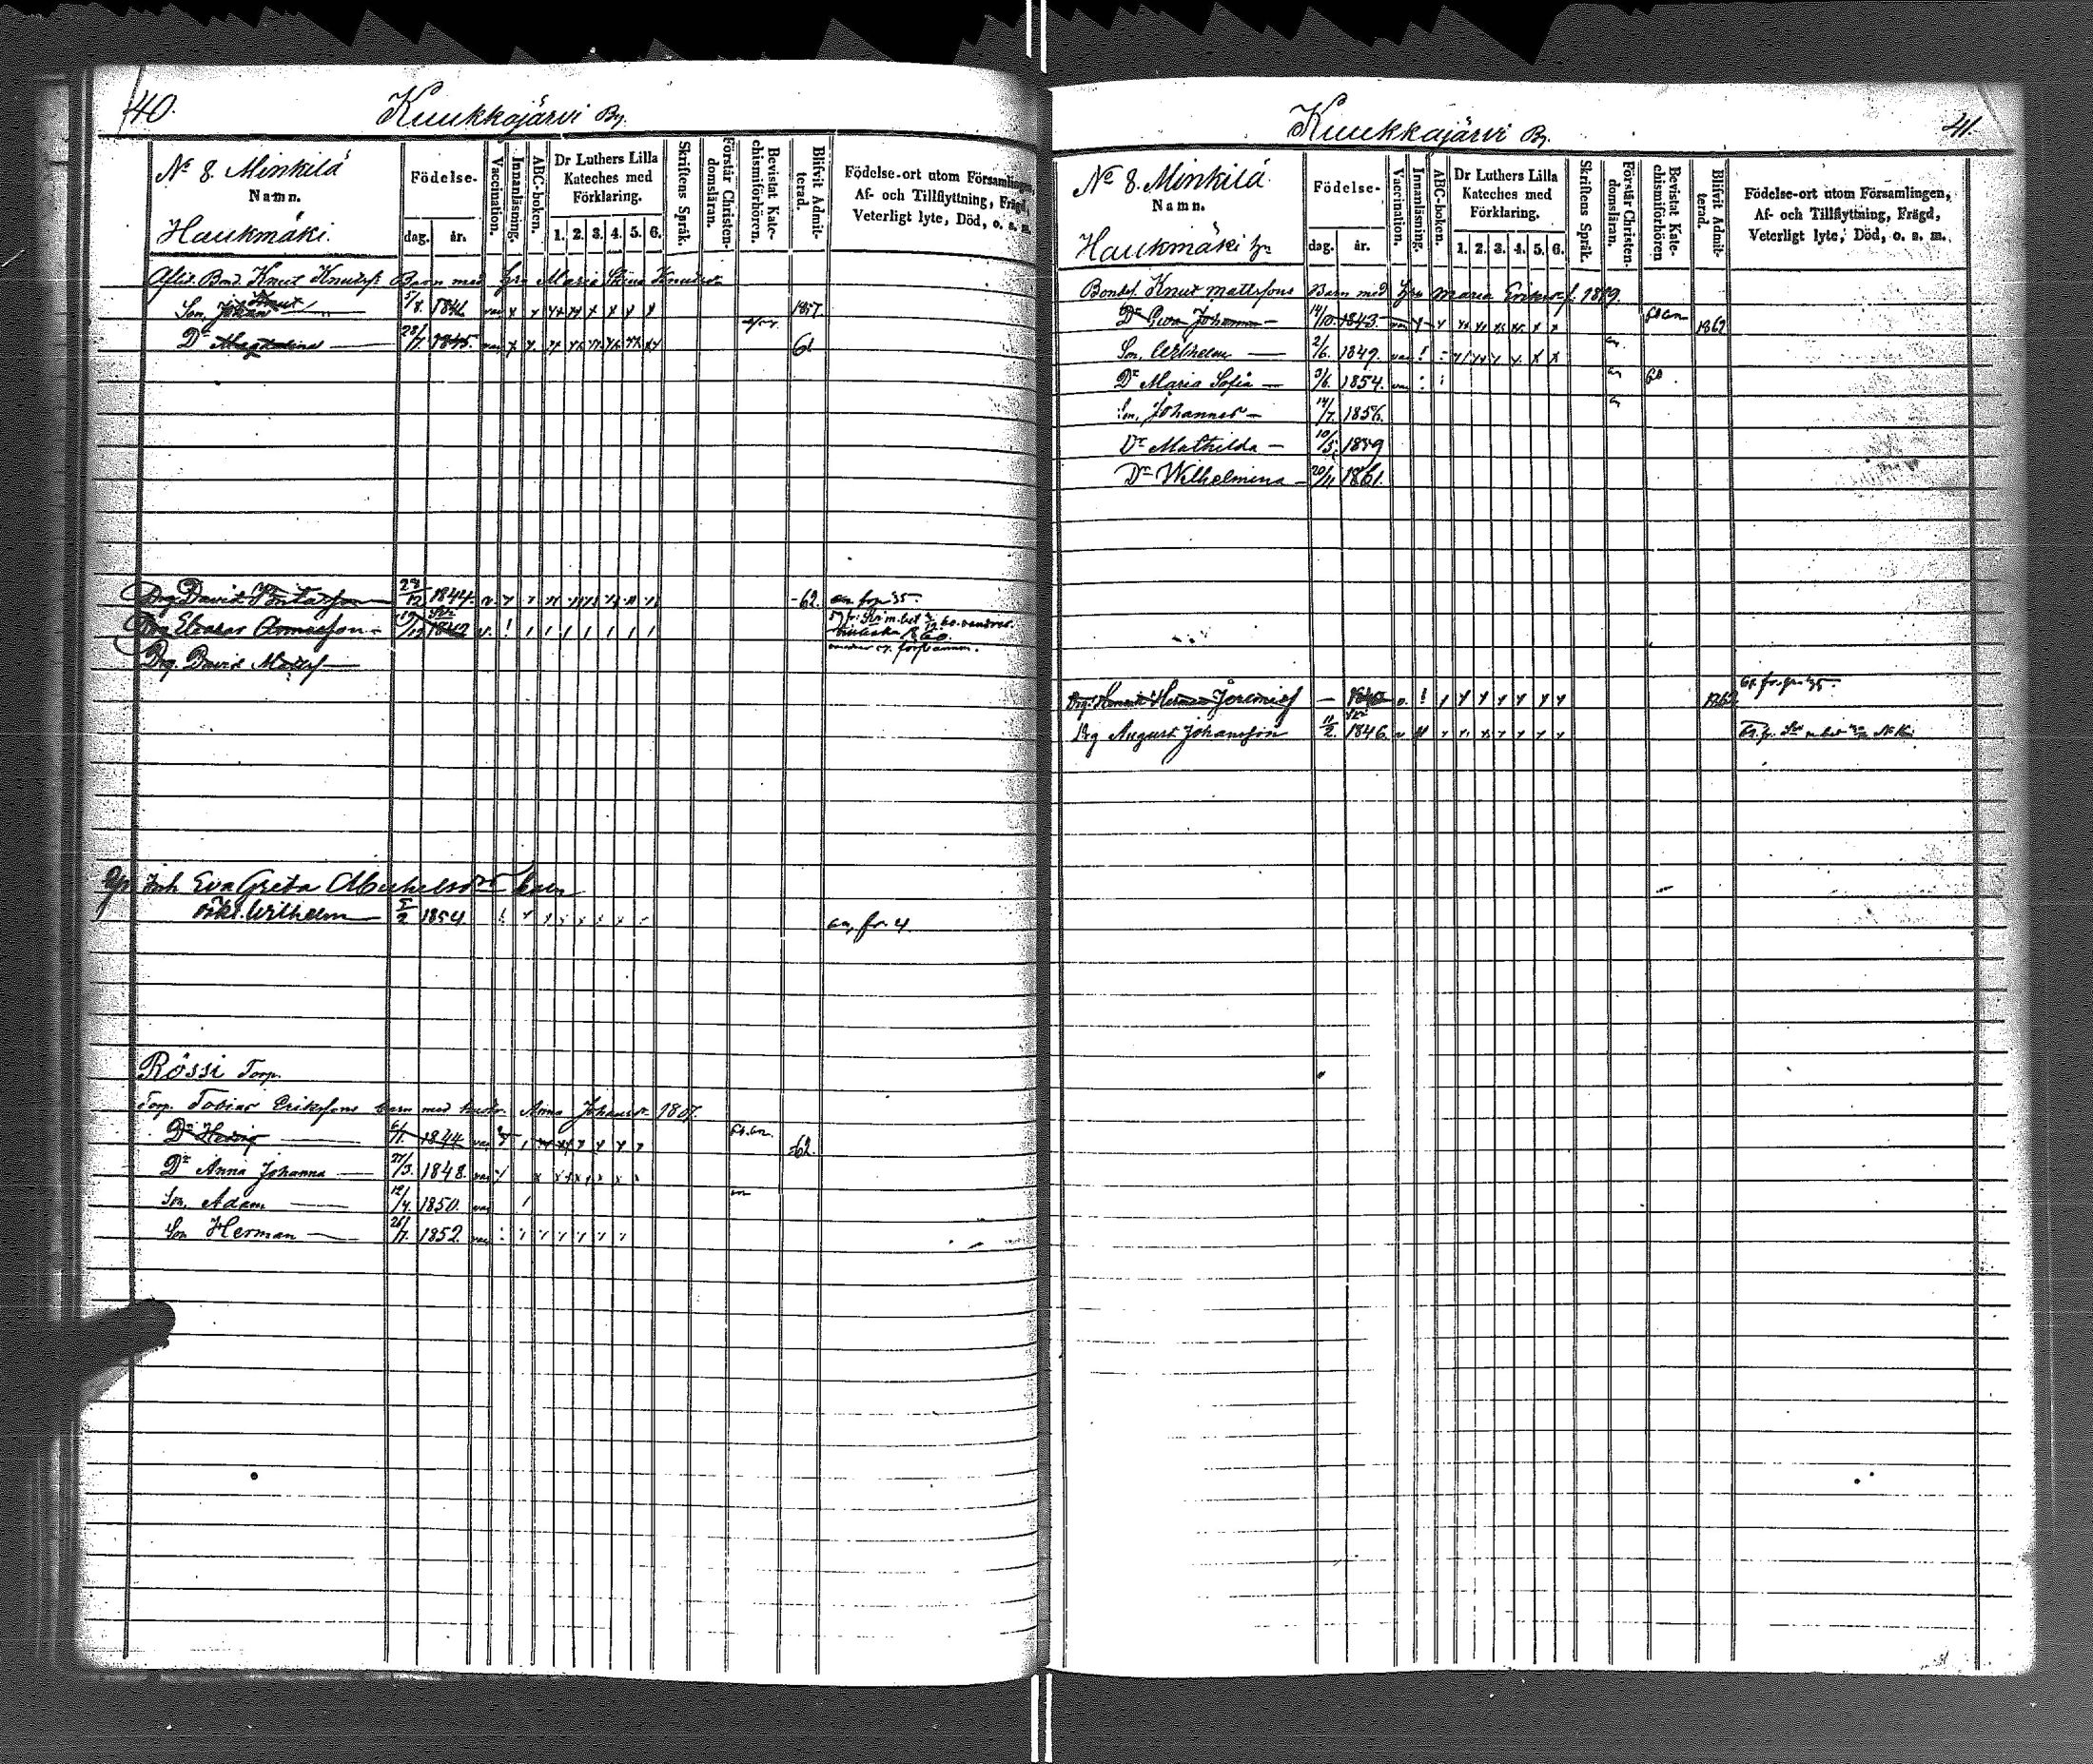 40.
Kuukkajärvi By.
Nº 8. Minkilä
Namn.
Haukmäki.
Födelse-
dag. år.
Vaccination.
Innanläsning.
ABC-boken.
Dr Luthers Lilla
Kateches med
Förklaring.
1. 2. 3. 4. 5. 6.
Skriftens Språk.
Förstår Christen-
domsläran.
Bevistat Kate-
chismiförhören.
Blifvit Admit-
terad.
Födelse-ort utom Församlingen,
Af- och Tillflyttning, Frägd,
Veterligt lyte, Död, o. s. m.
Afled. Bond. Knut Knutss. Barn med Hru Maria Stina
Son, Johan Knut 5/8. 1857
Dr Magdalena 28/7. 1845. 61
Drg David 28/12 1844. -62. fr p 35.
Drg Eleasar
Drg. David Matts
Inh Eva Greta Michelsdr barn
oäkt. Wilhelm 5/2 1854. fr. 4.
Rössi Torp.
Torp. Tobias Erikssons barn med hustr. Anna Johansdr 1807.
Dr Hedvig 6/1. 1844 -62.
Dr Anna Johanna 27/3. 1848.
Son, Adam 12/4. 1850.
Son Herman 26/7. 1852.
Kuukkajärvi By.
41.
Nº 8. Minkilä.
Namn.
Haukmäki
Födelse-
dag. år.
Vaccination.
Innanläsning.
ABC-boken.
Dr Luthers Lilla
Kateches med
Förklaring.
1. 2. 3. 4. 5. 6.
Skriftens Språk.
Förstår Christen-
domsläran.
Bevistat Kate-
chismiförhören
Blifvit Admit-
terad.
Födelse-ort utom Församlingen,
Af- och Tillflyttning, Frägd,
Veterligt lyte, Död, o. s. m.
Bondef. Knut Mattssons Barn med Hru Maria Eriksdr f. 1819.
Dr Eva Johanna 14/10 1843. 1862
Son, Wilhelm 2/6. 1849.
Dr Maria Sofia 3/6. 1854.
Son, Johannes 14/7. 1856.
Dr Mathilda 10/5. 1859
Dr Wilhelmina 20/11 1861.
Drg. Herman Jeremiess 1862
Drg August Johansson 11/2. 1846